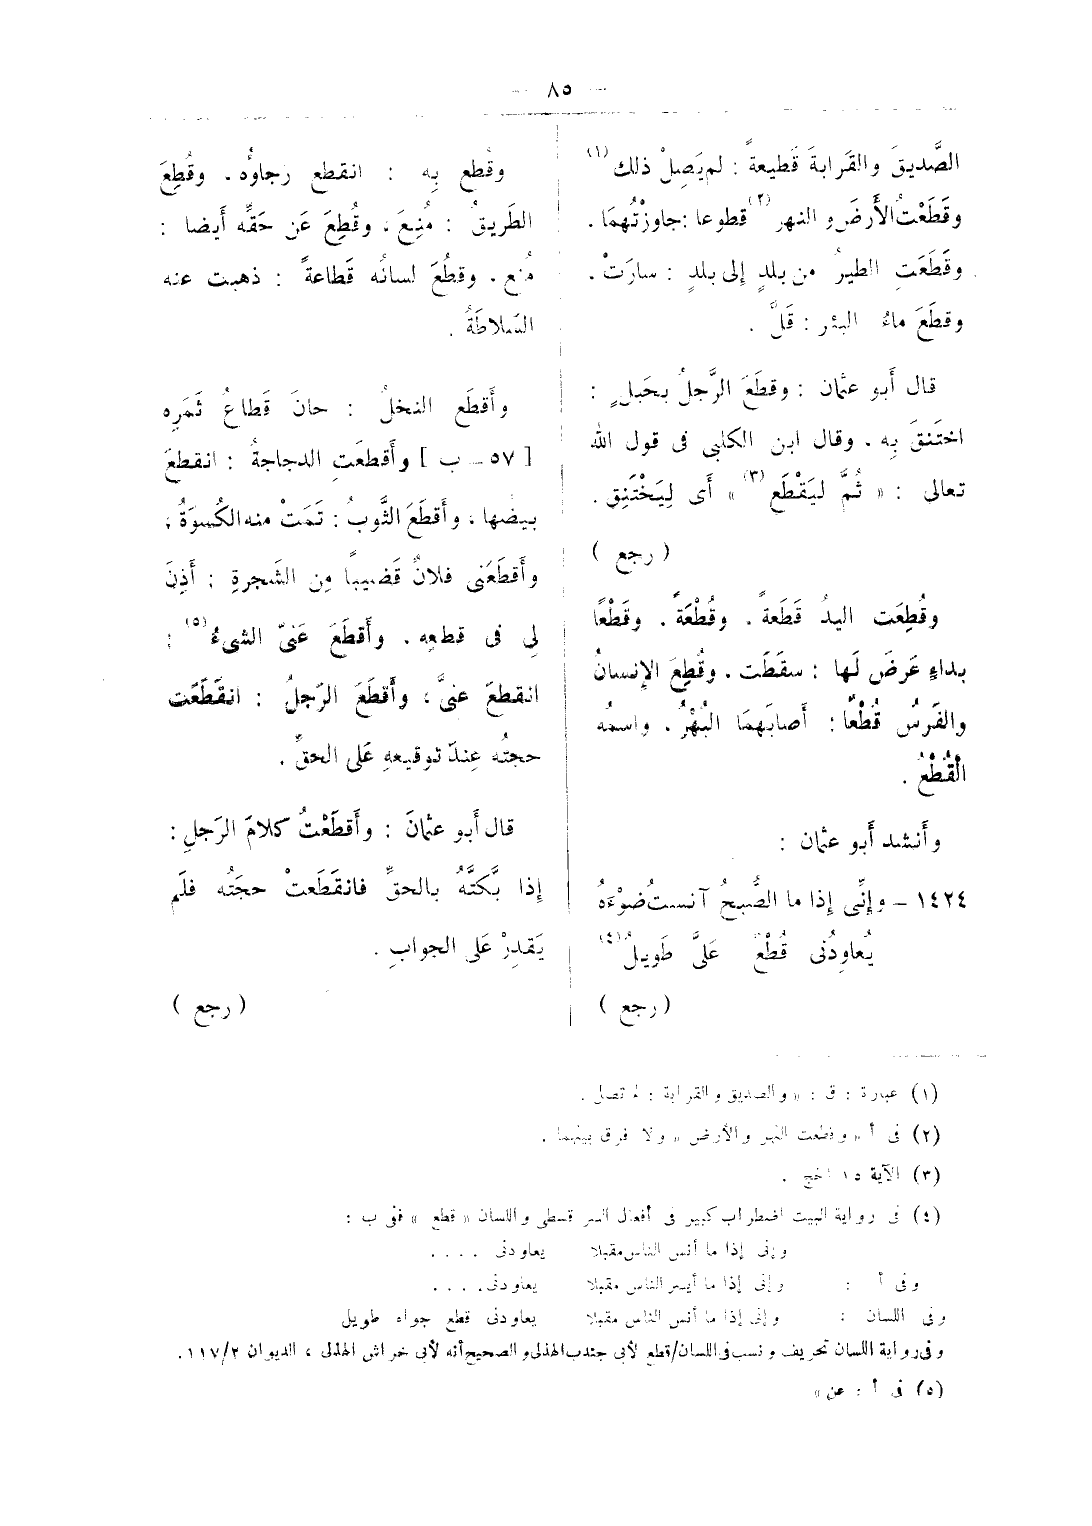 — ٨٥ —
الصَّديقَ والقَرابةَ قَطيعةً : لم يَصِلْ ذلك (١)
وقَطَعْتُ الأَرضَ و النهر (٢) قطوعا : جاوزْتُهمَا .
وقَطَعَتِ الطيرُ من بلدٍ إلى بلدٍ : سارَتْ .
وقطَعَ ماءُ البئر : قَلَّ .
قال أَبو عثمان : وقطَعَ الرَّجلُ بحَبلٍ :
اختَنقَ بِه . وقال ابن الكلبى فى قول الله
تعالى : « ثُمَّ ليَقْطَع (٣) » أَى لِيَخْتَنِق .
( رجع )
وقُطِعَت اليدُ قَطَعةً . وقُطْعَةً . وقَطْعًا
بداءٍ عَرضَ لَها : سقَطَت . وقُطِعَ الإِنسانُ
والفَرسُ قُطْعًا : أَصابَهمَا البُهْرُ . واسمُه
القُطْعُ .
وأَنشد أَبو عثمان :
١٤٢٤ – وإِنِّى إذا ما الصُّبحُ آنستُ ضوْءَهُ
يُعاودُنى قُطْعٌ عَلىَّ طَويلُ (٤)
( رجع )
وقُطع بِه : انقطع رجاوُه . وقُطِعَ
الطَريقُ : مُنِعَ ، وقُطِعَ عَن حَقِّه أَيضا :
مُنع . وقطُعَ لسانُه قَطاعةً : ذهبت عنه
السَلاطَةُ .
وأَقطَع النخلُ : حانَ قَطاعُ ثَمَرِه
[ ٥٧ – ب ] وأَقطعَتِ الدجاجةُ : انقطعَ
بيضُها ، وأَقطَعَ الثَّوبُ : تَمَتْ منه الكُسوَةُ ،
وأَقطَعَنى فلانٌ قَضيبًا مِن الشَجرةِ : أَذِنَ
لِى فى قطعِه . وأَقطَعَ عَنىّ الشىءُ (٥) :
انقطعَ عنىَّ ، وأَقطَعَ الرَجلُ : انقَطَعَت
حجتُه عِندَ توقيعهِ عَلى الحقِّ .
قال أَبو عثمانَ : وأَقطَعْتُ كلامَ الرَجلِ :
إِذا بَكَّتَّهُ بالحقِّ فانقَطَعتْ حجَتُه فلَم
يَقدِرْ عَلى الجوابِ .
( رجع )
(١) عبارة : ق : « والصديق والقرابة : لم تصل .
(٢) فى أ « وقطعت النهر والأرض » ولا فرق بينهما .
(٣) الآية ١٥ الحج .
(٤) فى رواية البيت اضطراب كبير فى أفعال السر قسطى واللسان « قطع » ففى ب :
وإنى إذا ما أنس الناس مقبلا يعاودنى . . . .
وفى أ : وإنى إذا ما أيسر الناس مقبلا يعاودنى. . . .
وفى اللسان : وإنى إذا ما أنس الناس مقبلا يعاودنى قطع جواه طويل
وفى رواية اللسان تحريف ونسب فى اللسان/قطع لأبى جندب الهذلى والصحيح أنه لأبى خراش الهذلى ، الديوان ١١٧/٢ .
(٥) فى أ : عن »